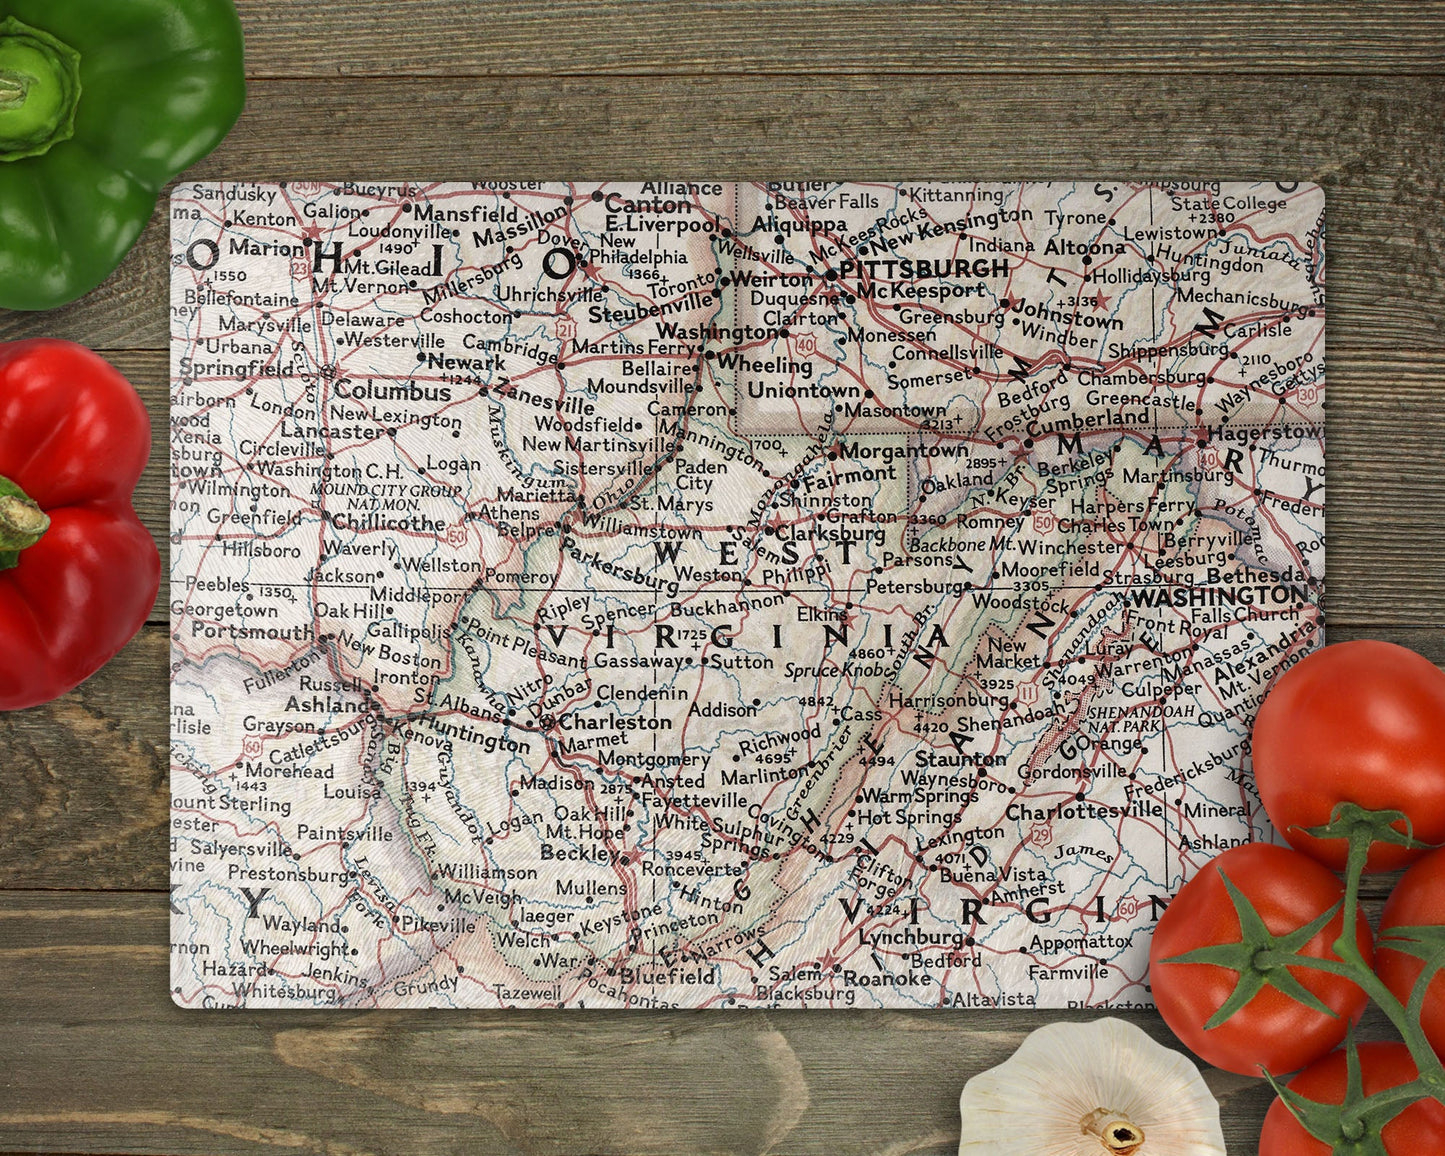 Sandusky
Bucyrus
Wooster
Alliance
Canton
Butler
Beaver Falls
Kittanning
State College
+2380
Kenton
Galion
Mansfield
Massillon
E.Liverpool
Aliquippa
McKees Rocks
New Kensington
Tyrone
Lewistown
Juniata
Marion
Loudonville
1490+
Dover
New
Philadelphia
Wellsville
Indiana
Altoona
Huntingdon
OHIO
Mt.Gilead
Mt.Vernon
Millersburg
1366+
Toronto
Weirton
PITTSBURGH
McKeesport
Hollidaysburg
23
+1550
Bellefontaine
Uhrichsville
Steubenville
Duquesne
Clairton
Greensburg
Johnstown
+3136
Windber
Mechanicsburg
Carlisle
Marysville
Delaware
Coshocton
21
Washington
40
Monessen
Urbana
Westerville
Newark
Cambridge
Martins Ferry
Wheeling
Connellsville
Shippensburg
+2110
Springfield
Scioto
Columbus
+1244
Zanesville
Bellaire
Moundsville
Uniontown
Somerset
Bedford
Chambersburg
Waynesboro
Gettys
30
London
New Lexington
Woodsfield
Cameron
Masontown
3213+
Frostburg
Greencastle
Cumberland
Lancaster
Muskingum
New Martinsville
Mannington
1700+
Monongahela
Morgantown
MAR
Y
Hagerstow
Xenia
Circleville
Sistersville
Paden
City
Fairmont
2895+
Oakland
N. Br.
Keyser
Berkeley
Springs
Martinsburg
40
Thurmo
Washington C.H.
Logan
Wilmington
MOUND CITY GROUP
NAT. MON.
Marietta
Ohio
St. Marys
Shinnston
Grafton
3360
+
Romney
50
Harpers Ferry
Charles Town
Potomac
Frederi
Greenfield
Chillicothe
Athens
Belpre
Williamstown
Salem
Clarksburg
Backbone Mt.
Winchester
Berryville
Leesburg
Hillsboro
Waverly
50
Parkersburg
WEST
Weston
Philippi
Parsons
Petersburg
Moorefield
3305
Strasburg
Bethesda
WASHINGTON
Peebles
1350+
Jackson
Wellston
Pomeroy
Middleport
Ripley
Spencer
Buckhannon
Elkins
Woodstock
Shenandoah
Front Royal
Falls Church
Georgetown
Oak Hill
Gallipolis
Point Pleasant
VIRGINIA
1725
+
4860+
South Br.
New
Market
Luray
Warrenton
Manassas
Alexandria
Mt. Vernon
Portsmouth
New Boston
Kanawha
Gassaway
Sutton
Spruce Knob
Fullerton
Ironton
Russell
Ashland
St. Albans
Nitro
Dunbar
Clendenin
Addison
4842+
Cass
Harrisonburg
3925
11
4049
Culpeper
Quantico
Grayson
Catlettsburg
Kenova
Huntington
Charleston
4420
Shenandoah
SHENANDOAH
NAT. PARK
60
Morehead
1443
Louisa
Big
Sandy
Guyandot
Marmet
Montgomery
Richwood
4695+
Marlinton
Greenbrier
4494
Staunton
Waynesboro
Orange
Gordonsville
Fredericksburg
Mount Sterling
1394
+
Tug Fk.
Madison
2875
Ansted
Fayetteville
Warm Springs
Hot Springs
Charlottesville
Mineral
Paintsville
Logan
Oak Hill
Mt. Hope
White Sulphur
Springs
Covington
4229
Lexington
29
James
Ashland
Salyersville
Prestonsburg
Levisa
Fork
Williamson
Beckley
3945+
Ronceverte
Clifton
Forge
4071
Buena Vista
McVeigh
Mullens
Hinton
4224+
Amherst
VIRGIN
60
KY
Wayland
Pikeville
Iaeger
Keystone
Princeton
Lynchburg
Appomattox
Wheelwright
Welch
Narrows
Bedford
Farmville
Hazard
Jenkins
War
Bluefield
Salem
Roanoke
Whitesburg
Grundy
Tazewell
Pocahontas
Blacksburg
Altavista
Blackston